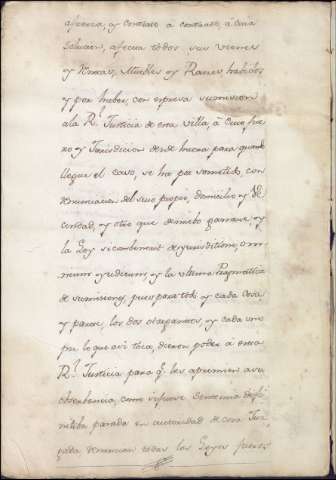 y contrato a contrato, á cuia
afecta todos sus vienes
y Rentas, Muebles, y Raices habidos
y por haber, con expresa sumision
ala Rl. Justicia de esta villa, á cuio fue
ro y Jurisdicion desde haora para quando
llegue el caso, se ha por sometido, con
renunciacion del suio propio, domicilio y Ve
cindad, y otro que de nuebo ganare, y
la Ley si combenerit de jurisditione, omnium
judicum, y la ultima Pragmatica
de sumisiones, pues para todo y cada cosa
y parte, los dos otorgantes, y cada uno
por lo que asi toca, dieron poder á esta
Rl. Justicia para q.e les apremien a su
observancia, como si fuese Sentencia defi
nitiba pasada en autoridad de cosa Juz
gada renuncian todas las Leyes fueros